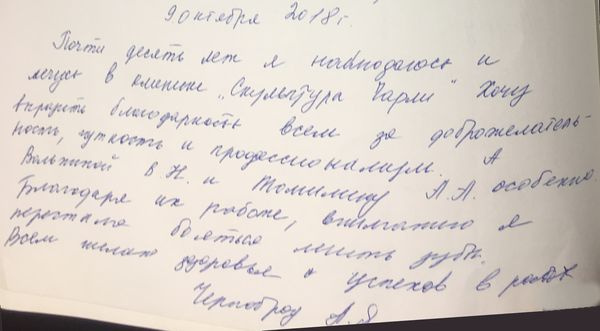 9 октября 2018 г.
Почти десять лет я наблюдаюсь и
лечусь в клинике „Скульптура Чарли" Хочу
выразить благодарность всем за доброжелатель-
ность, чуткость и профессионализм. А
Вольхиной В.Н. и Томилину А.А. особенно.
Благодаря их работе, вниманию я
перестала бояться лечить зубы.
Всем желаю здоровья и успехов в работе
Черноброд А.Я